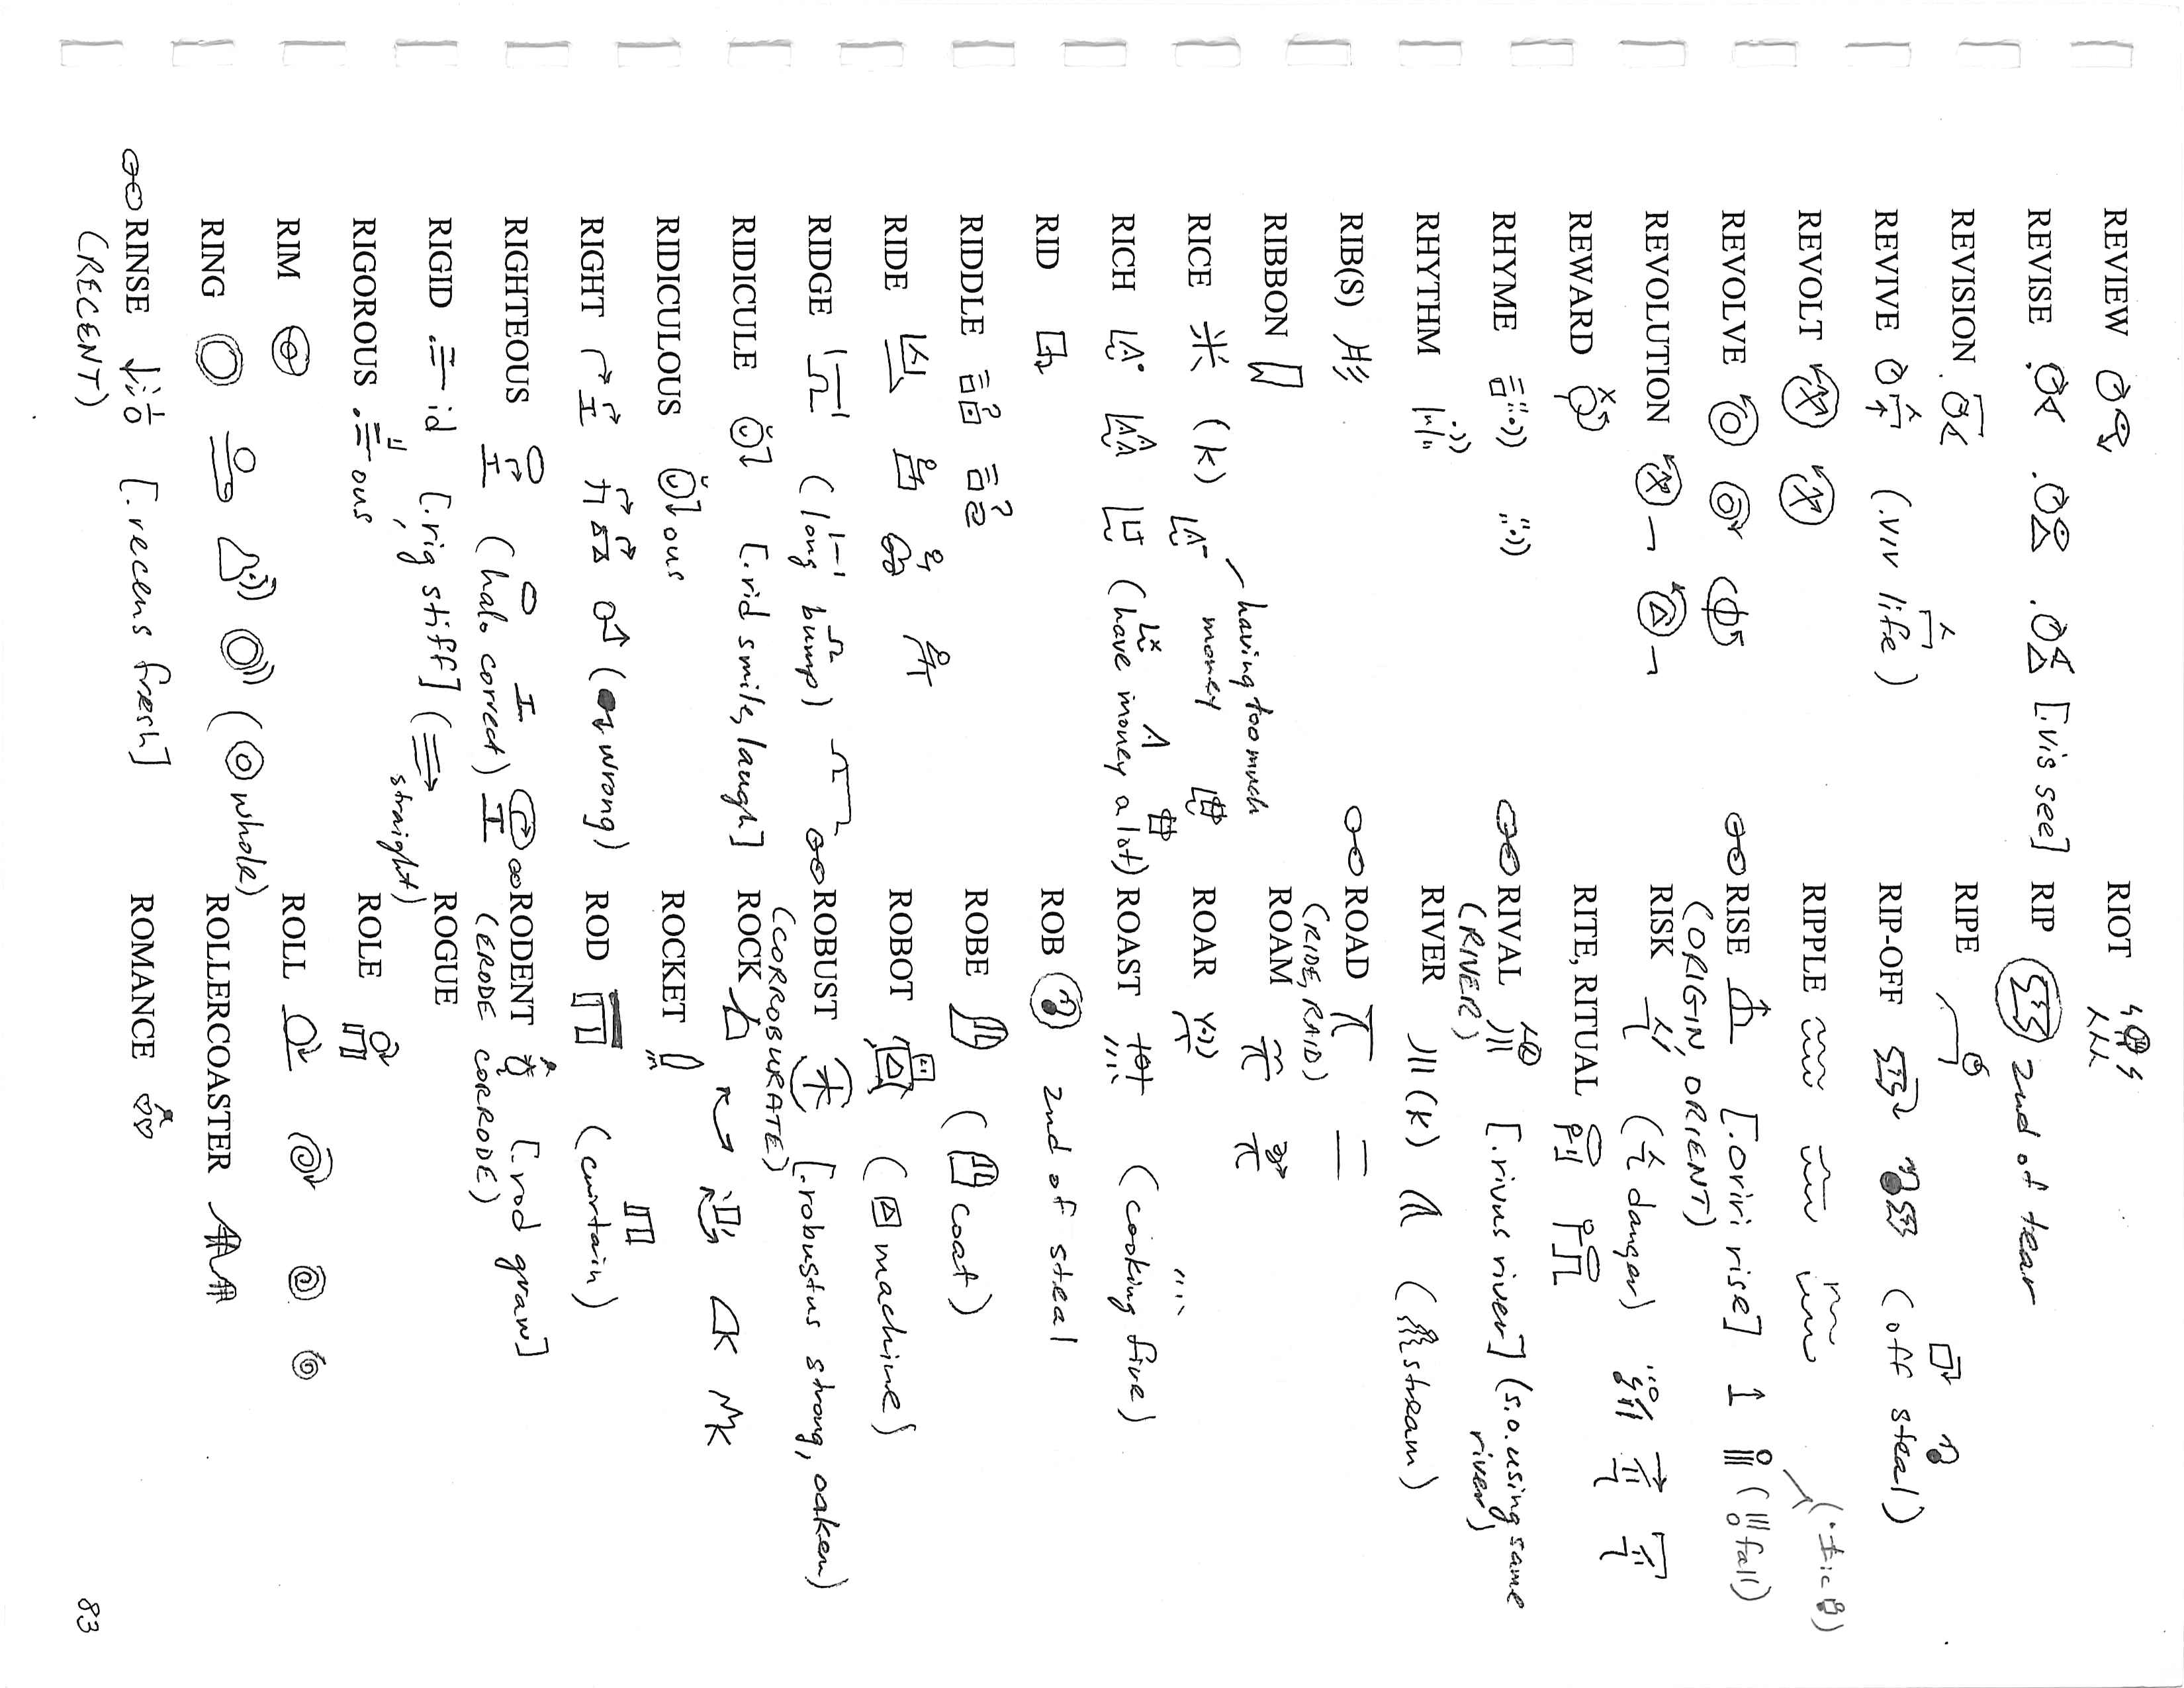 REVIEW
REVISE [.vis see]
REVISION
REVIVE (.viv life)
REVOLT
REVOLVE
REVOLUTION
REWARD
RHYME
RHYTHM
RIB(S)
RIBBON
RICE (k) money having too much
RICH (have money a lot)
RID
RIDDLE
RIDE
RIDGE (long bump)
RIDICULE [.rid smile, laugh]
RIDICULOUS ous
RIGHT (wrong)
RIGHTEOUS (halo correct)
RIGID id [.rig stiff] (straight)
RIGOROUS ous
RIM
RING (whole)
RINSE [.recens fresh]
(RECENT)
RIOT
RIP 2nd of tear
RIPE
RIP-OFF (off steal)
RIPPLE
RISE [.oriri rise] (fall)
(ORIGIN, ORIENT)
RISK (danger)
RITE, RITUAL
RIVAL [.rivus river] (s.o. using same river)
(RIVER)
RIVER (k) (stream)
ROAD
(RIDE, RAID)
ROAM
ROAR
ROAST (cooking fire)
ROB 2nd of steal
ROBE (coat)
ROBOT (machine)
ROBUST [.robustus strong, oaken)
(CORROBURATE)
ROCK
ROCKET
ROD (curtain)
RODENT [.rod gnaw]
(ERODE CORRODE)
ROGUE
ROLE
ROLL
ROLLERCOASTER
ROMANCE
83